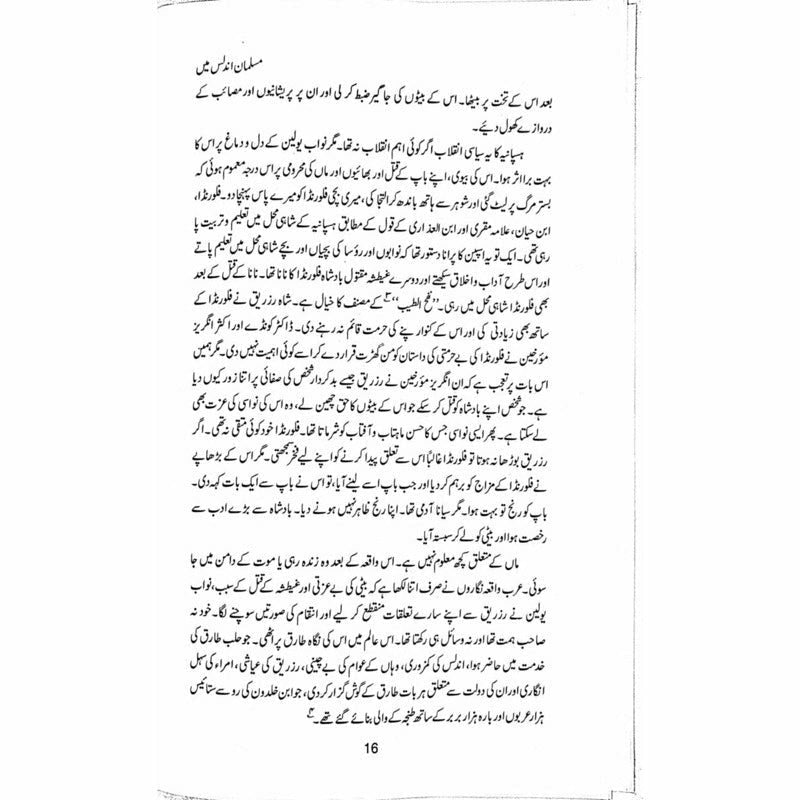 مسلمان اندلس میں
بعد اس کے تخت پر بیٹھا۔ اس کے بیٹوں کی جاگیر ضبط کر لی اور ان پر پریشانیوں اور مصائب کے
دروازے کھول دیئے۔
ہسپانیہ کا یہ سیاسی انقلاب اگر کوئی اہم انقلاب نہ تھا۔ مگر نواب یولین کے دل و دماغ پر اس کا
بہت برا اثر ہوا۔ اس کی بیوی، اپنے باپ کے قتل اور بھائیوں اور ماں کی محرومی پر اس درجہ مغموم ہوئی کہ
بستر مرگ پر لیٹ گئی اور شوہر سے ہاتھ باندھ کر التجا کی، میری بچی فلورنڈا کو میرے پاس پہنچا دو۔ فلورنڈا،
ابن حیان، علامہ مقری اور ابن العذاری کے قول کے مطابق ہسپانیہ کے شاہی محل میں تعلیم و تربیت پا
رہی تھی۔ ایک تو یہ اسپین کا پرانا دستور تھا کہ نوابوں اور رؤسا کی بچیاں اور بچے شاہی محل میں تعلیم پاتے
اور اس طرح آداب و اخلاق سیکھتے اور دوسرے غیطشہ مقتول بادشاہ فلورنڈا کا نانا تھا۔ نانا کے قتل کے بعد
بھی فلورنڈا شاہی محل میں رہی۔ ”نفح الطیب“ کے مصنف کا خیال ہے۔ شاہ رزریق نے فلورنڈا کے
ساتھ بھی زیادتی کی اور اس کے کنوارپنے کی حرمت قائم نہ رہنے دی۔ ڈاکٹر کونڈے اور اکثر انگریز
مؤرخین نے فلورنڈا کی بے حرمتی کی داستان کو من گھڑت قرار دے کر اسے کوئی اہمیت نہیں دی۔ مگر ہمیں
اس بات پر تعجب ہے کہ ان انگریز مؤرخین نے رزریق جیسے بدکردار شخص کی صفائی پر اتنا زور کیوں دیا
ہے۔ جو شخص اپنے بادشاہ کو قتل کر سکے جو اس کے بیٹوں کا حق چھین لے، وہ اس کی نواسی کی عزت بھی
لے سکتا ہے۔ پھر ایسی نواسی جس کا حسن ماہتاب و آفتاب کو شرماتا تھا۔ فلورنڈا خود کوئی متقی نہ تھی۔ اگر
رزریق بوڑھا نہ ہوتا تو فلورنڈا غالبًا اس سے تعلق پیدا کرنے کو اپنے لیے فخر سمجھتی۔ مگر اس کے بڑھاپے
نے فلورنڈا کے مزاج کو برہم کر دیا اور جب باپ اسے لینے آیا، تو اس نے باپ سے ایک بات کہہ دی۔
باپ کو رنج تو بہت ہوا۔ مگر سیانا آدمی تھا۔ اپنا رنج ظاہر نہیں ہونے دیا۔ بادشاہ سے بڑے ادب سے
رخصت ہوا اور بیٹی کو لے کر سبتہ آیا۔
ماں کے متعلق کچھ معلوم نہیں ہے۔ اس واقعہ کے بعد وہ زندہ رہی یا موت کے دامن میں جا
سوئی۔ عرب واقعہ نگاروں نے صرف اتنا لکھا ہے کہ بیٹی کی بے عزتی اور غیطشہ کے قتل کے سبب، نواب
یولین نے رزریق سے اپنے سارے تعلقات منقطع کر لیے اور انتقام کی صورتیں سوچنے لگا۔ خود نہ
صاحب ہمت تھا اور نہ وسائل ہی رکھتا تھا۔ اس عالم میں اس کی نگاہ طارق پر اٹھی۔ جو حلب طارق کی
خدمت میں حاضر ہوا، اندلس کی کمزوری، وہاں کے عوام کی بے چینی، رزریق کی عیاشی، امراء کی سہل
انگاری اور ان کی دولت سے متعلق ہر بات طارق کے گوش گزار کر دی، جو ابن خلدون کی رو سے ستائیس
ہزار عربوں اور بارہ ہزار بربر کے ساتھ طنجہ کے والی بنائے گئے تھے۔
16